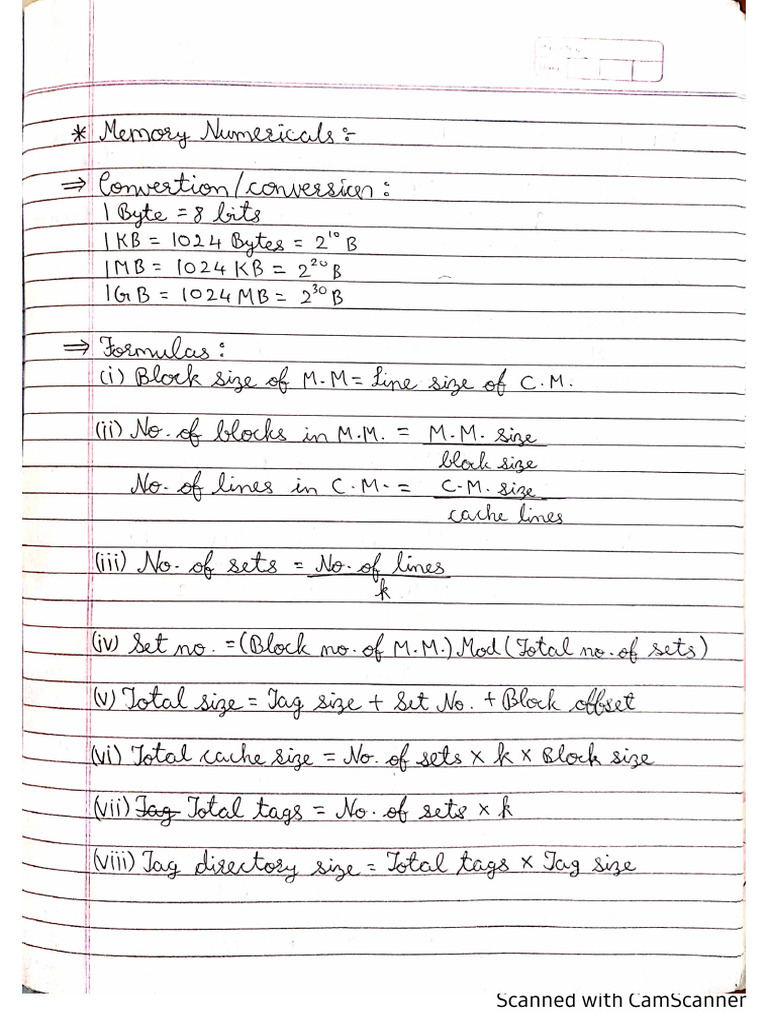 * Memory Numericals :-
⇒ Convertion/conversion :
1 Byte = 8 bits
1 KB = 1024 Bytes = 2¹⁰ B
1 MB = 1024 KB = 2²⁰ B
1 GB = 1024 MB = 2³⁰ B
⇒ Formulas :
(i) Block size of M.M = Line size of C.M.
(ii) No. of blocks in M.M. = M.M. size
block size
No. of lines in C.M. = C.M. size
cache lines
(iii) No. of sets = No. of lines
k
(iv) Set no. = (Block no. of M.M.) Mod (Total no. of sets)
(v) Total size = Tag size + Set No. + Block offset
(vi) Total cache size = No. of sets × k × Block size
(vii) Tag Total tags = No. of sets × k
(viii) Tag directory size = Total tags × Tag size
Scanned with CamScanner